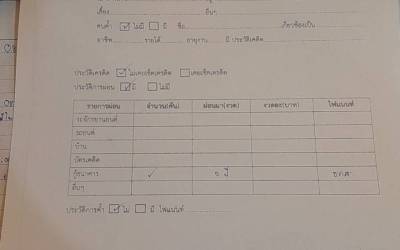 เรื่อง.....................................................อื่นๆ....................................
คนค้ำ ☑ ไม่มี ☐ มี ชื่อ.................................................เกี่ยวข้องเป็น.............
อาชีพ...............รายได้............อายุงาน............มี ประวัติเครดิต.....................
ประวัติเครดิต ☑ ไม่เคยเช็คเครดิต ☐ เคยเช็คเครดิต
ประวัติการผ่อน ☑ มี ☐ ไม่มี
รายการผ่อน จำนวน(คัน) ผ่อนมา(งวด) งวดละ(บาท) ไฟแนนท์
รถจักรยานยนต์
รถยนต์
บ้าน
บัตรเคดิต
กู้ธนาคาร ✓ ปี ธกส.
อื่นๆ
ประวัติการค้ำ ☑ ไม่ ☐ มี ไฟแนนท์....................